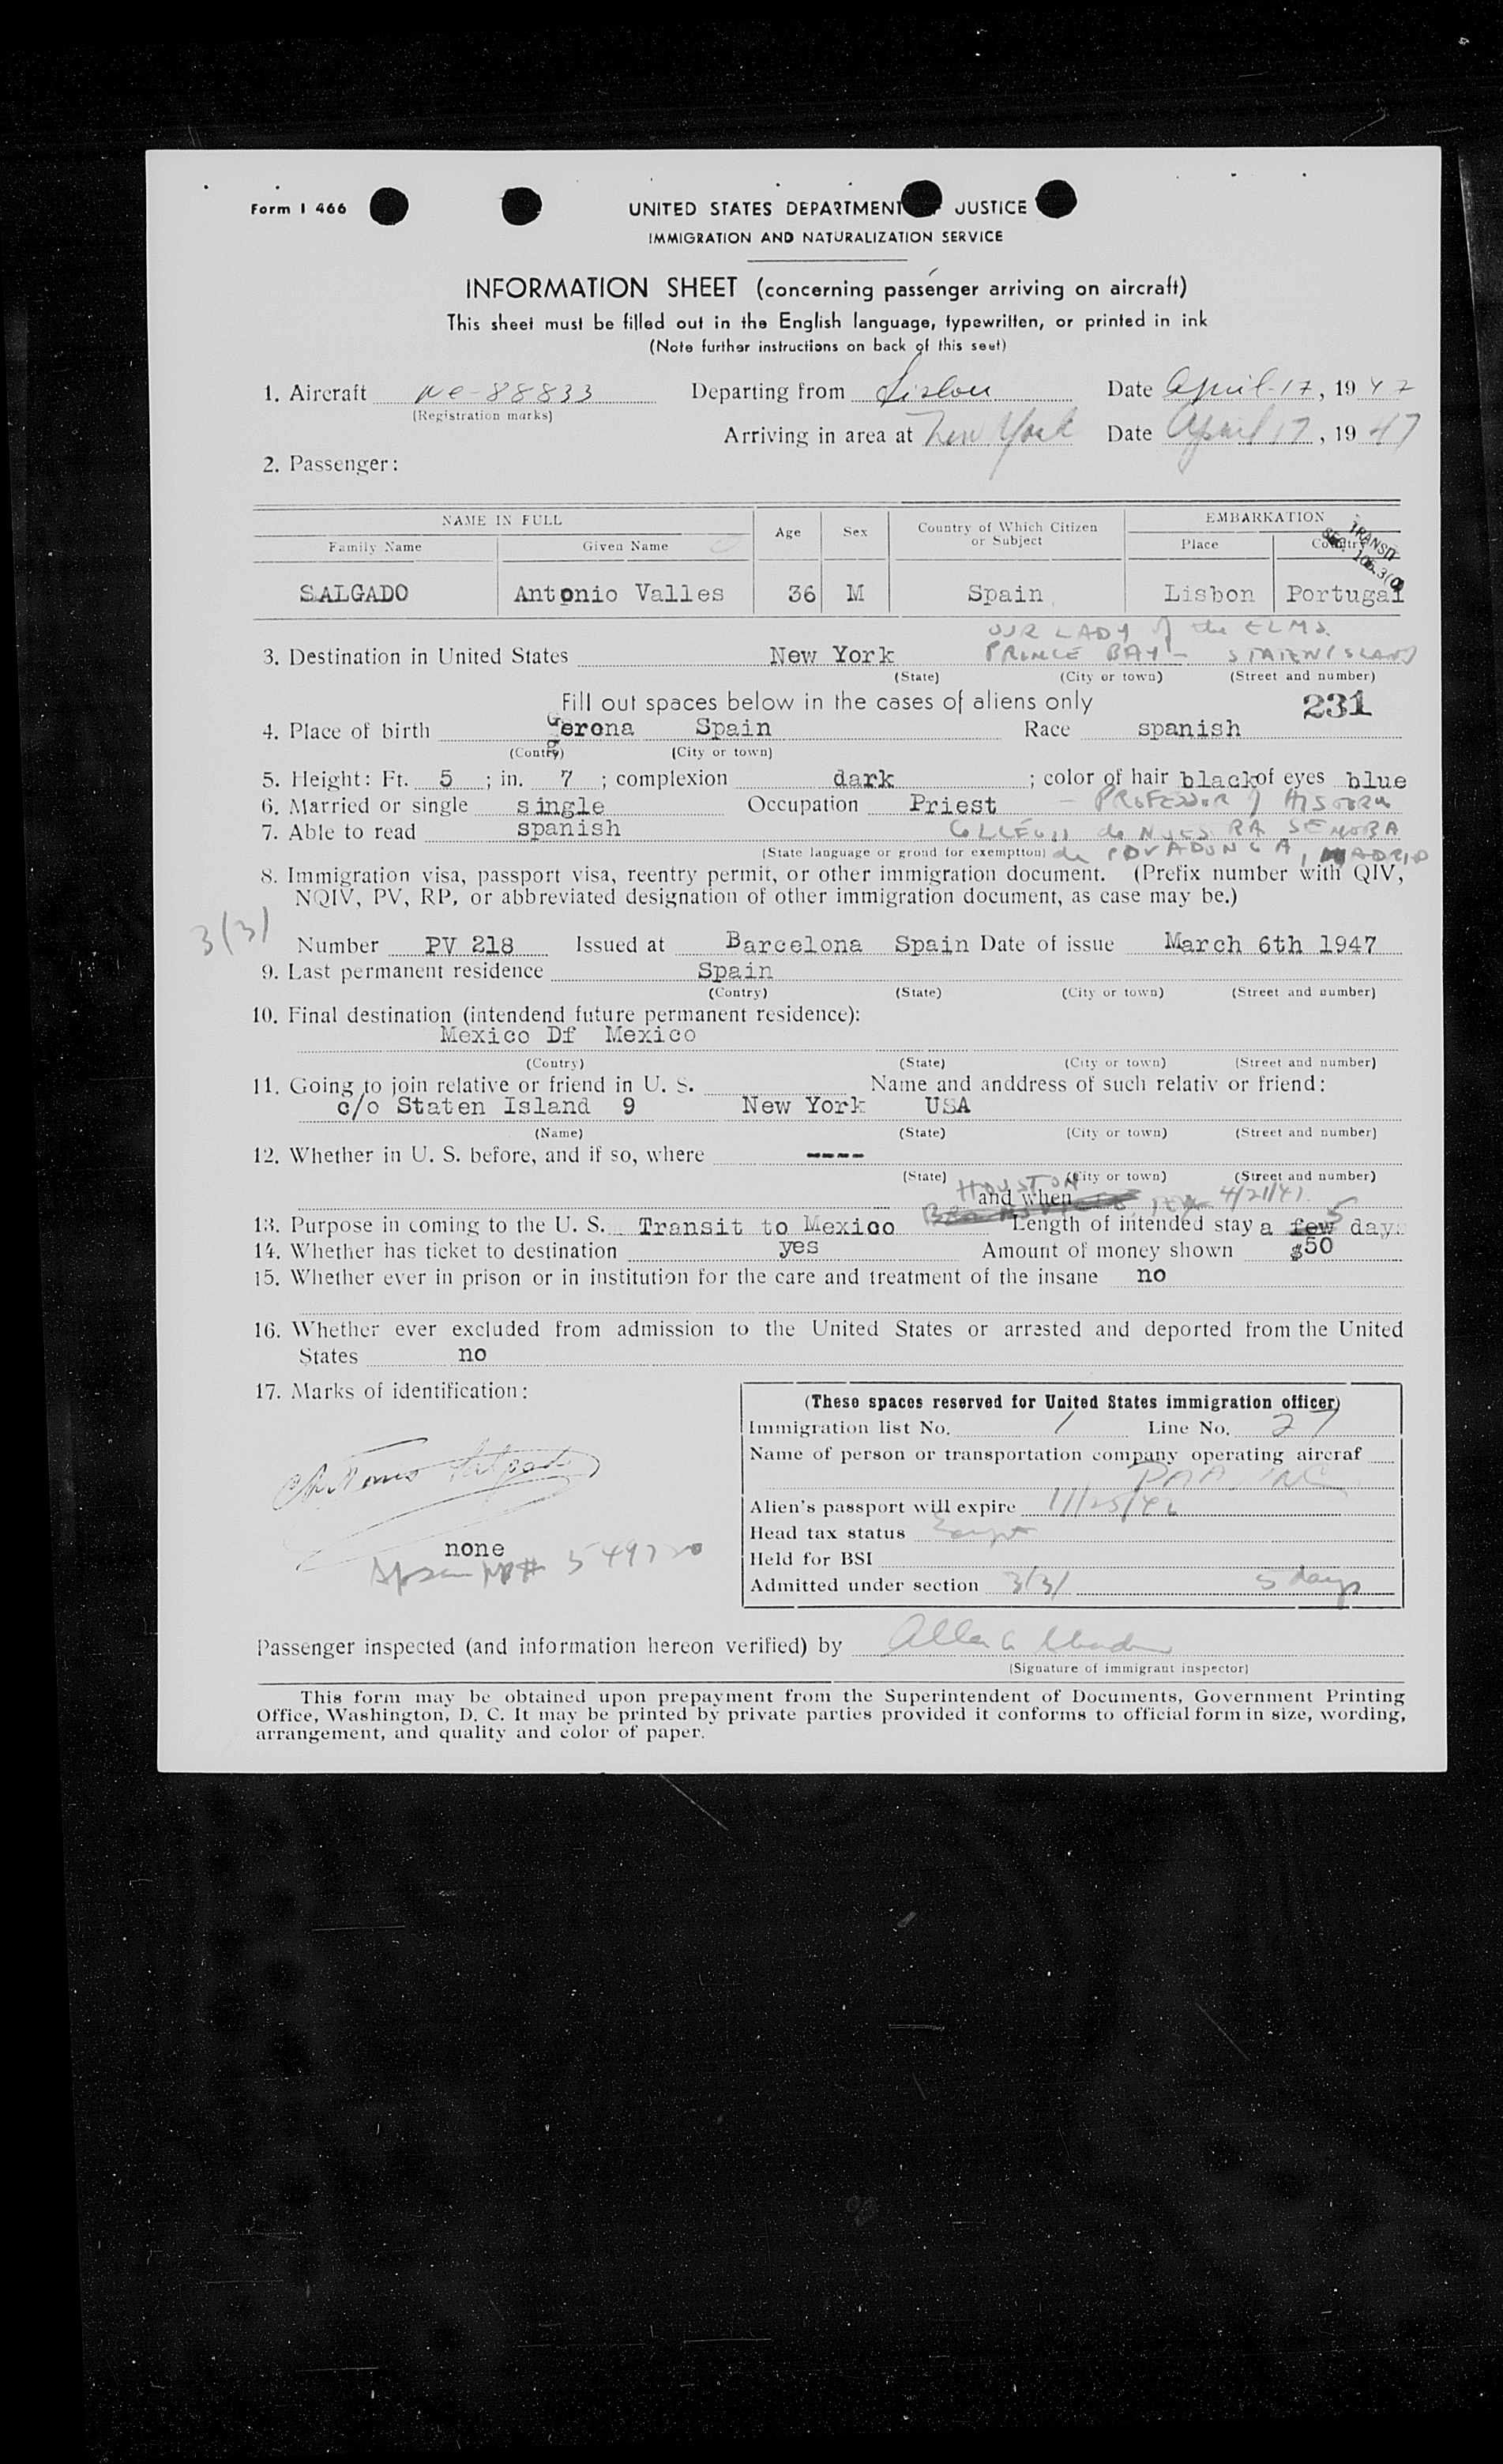 Form I 466
UNITED STATES DEPARTMENT JUSTICE
IMMIGRATION AND NATURALIZATION SERVICE
INFORMATION SHEET (concerning passenger arriving on aircraft)
This sheet must be filled out in the English language, typewritten, or printed in ink
(Note further instructions on back of this seet)
1. Aircraft NC-88833 Departing from Lisbon Date April-17, 1947
(Registration marks)
Arriving in area at New York Date April 17, 1947
2. Passenger:
NAME IN FULL Age Sex Country of Which Citizen or Subject EMBARKATION
Family Name Given Name Place Country
TRANSIT
106.3(
SALGADO Antonio Valles 36 M Spain Lisbon Portugal
OUR LADY of the ELMS
3. Destination in United States New York PRINCE BAY - STATEN ISLAND
(State) (City or town) (Street and number)
Fill out spaces below in the cases of aliens only 231
4. Place of birth Gerona Spain Race spanish
(Contry) (City or town)
5. Height: Ft. 5; in. 7; complexion dark; color of hair black of eyes blue
6. Married or single single Occupation Priest - PROFESSOR of HISTORY
7. Able to read spanish de NUESTRA SENORA
(State language or grond for exemption) de COVADONGA, MADRID
8. Immigration visa, passport visa, reentry permit, or other immigration document. (Prefix number with QIV,
NQIV, PV, RP, or abbreviated designation of other immigration document, as case may be.)
3(3)
Number PV 218 Issued at Barcelona Spain Date of issue March 6th 1947
9. Last permanent residence Spain
(Contry) (State) (City or town) (Street and number)
10. Final destination (intendend future permanent residence):
Mexico Df Mexico
(Contry) (State) (City or town) (Street and number)
11. Going to join relative or friend in U. S. Name and anddress of such relativ or friend:
c/o Staten Island 9 New York USA
(Name) (State) (City or town) (Street and number)
12. Whether in U. S. before, and if so, where ----
(State) (City or town) (Street and number)
HOUSTON and when TEX 4/21/47.
13. Purpose in coming to the U. S. Transit to Mexico Length of intended stay a few 5 days
14. Whether has ticket to destination yes Amount of money shown $50
15. Whether ever in prison or in institution for the care and treatment of the insane no
16. Whether ever excluded from admission to the United States or arrested and deported from the United
States no
17. Marks of identification:
(These spaces reserved for United States immigration officer)
Immigration list No. 1 Line No. 27
Name of person or transportation company operating aircraf
PAA. INC
Antonio Salgado
Alien's passport will expire 11/25/46
Head tax status Exempt
none
Held for BSI
Admitted under section 3(3) 5 days
Passenger inspected (and information hereon verified) by
(Signature of immigrant inspector)
This form may be obtained upon prepayment from the Superintendent of Documents, Government Printing
Office, Washington, D. C. It may be printed by private parties provided it conforms to official form in size, wording,
arrangement, and quality and color of paper.